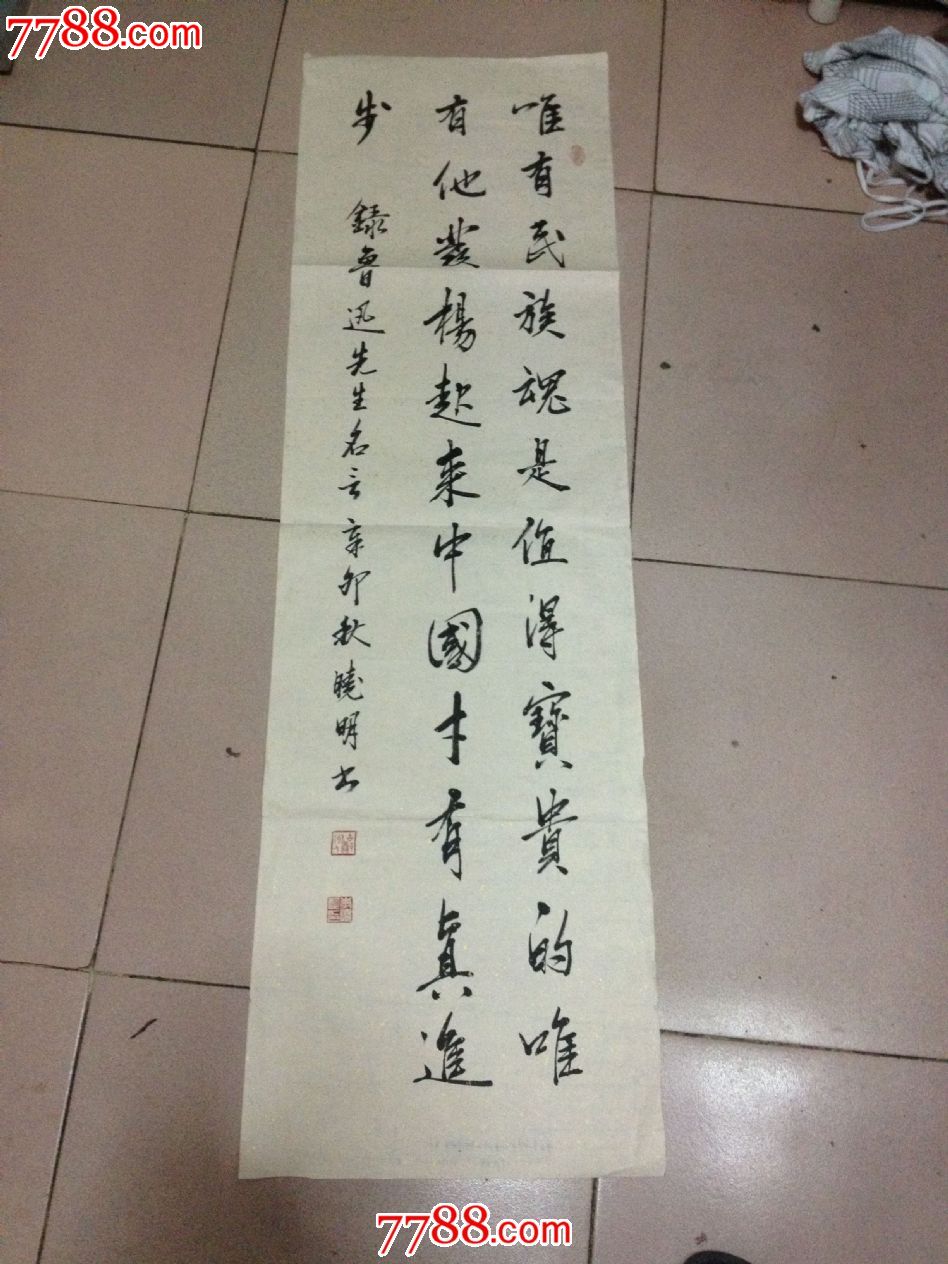 7788.com
唯有民族魂是值得寶貴的唯
有他發楊起来中國才有真進
步
錄魯迅先生名言辛卯秋曉明书
7788.com